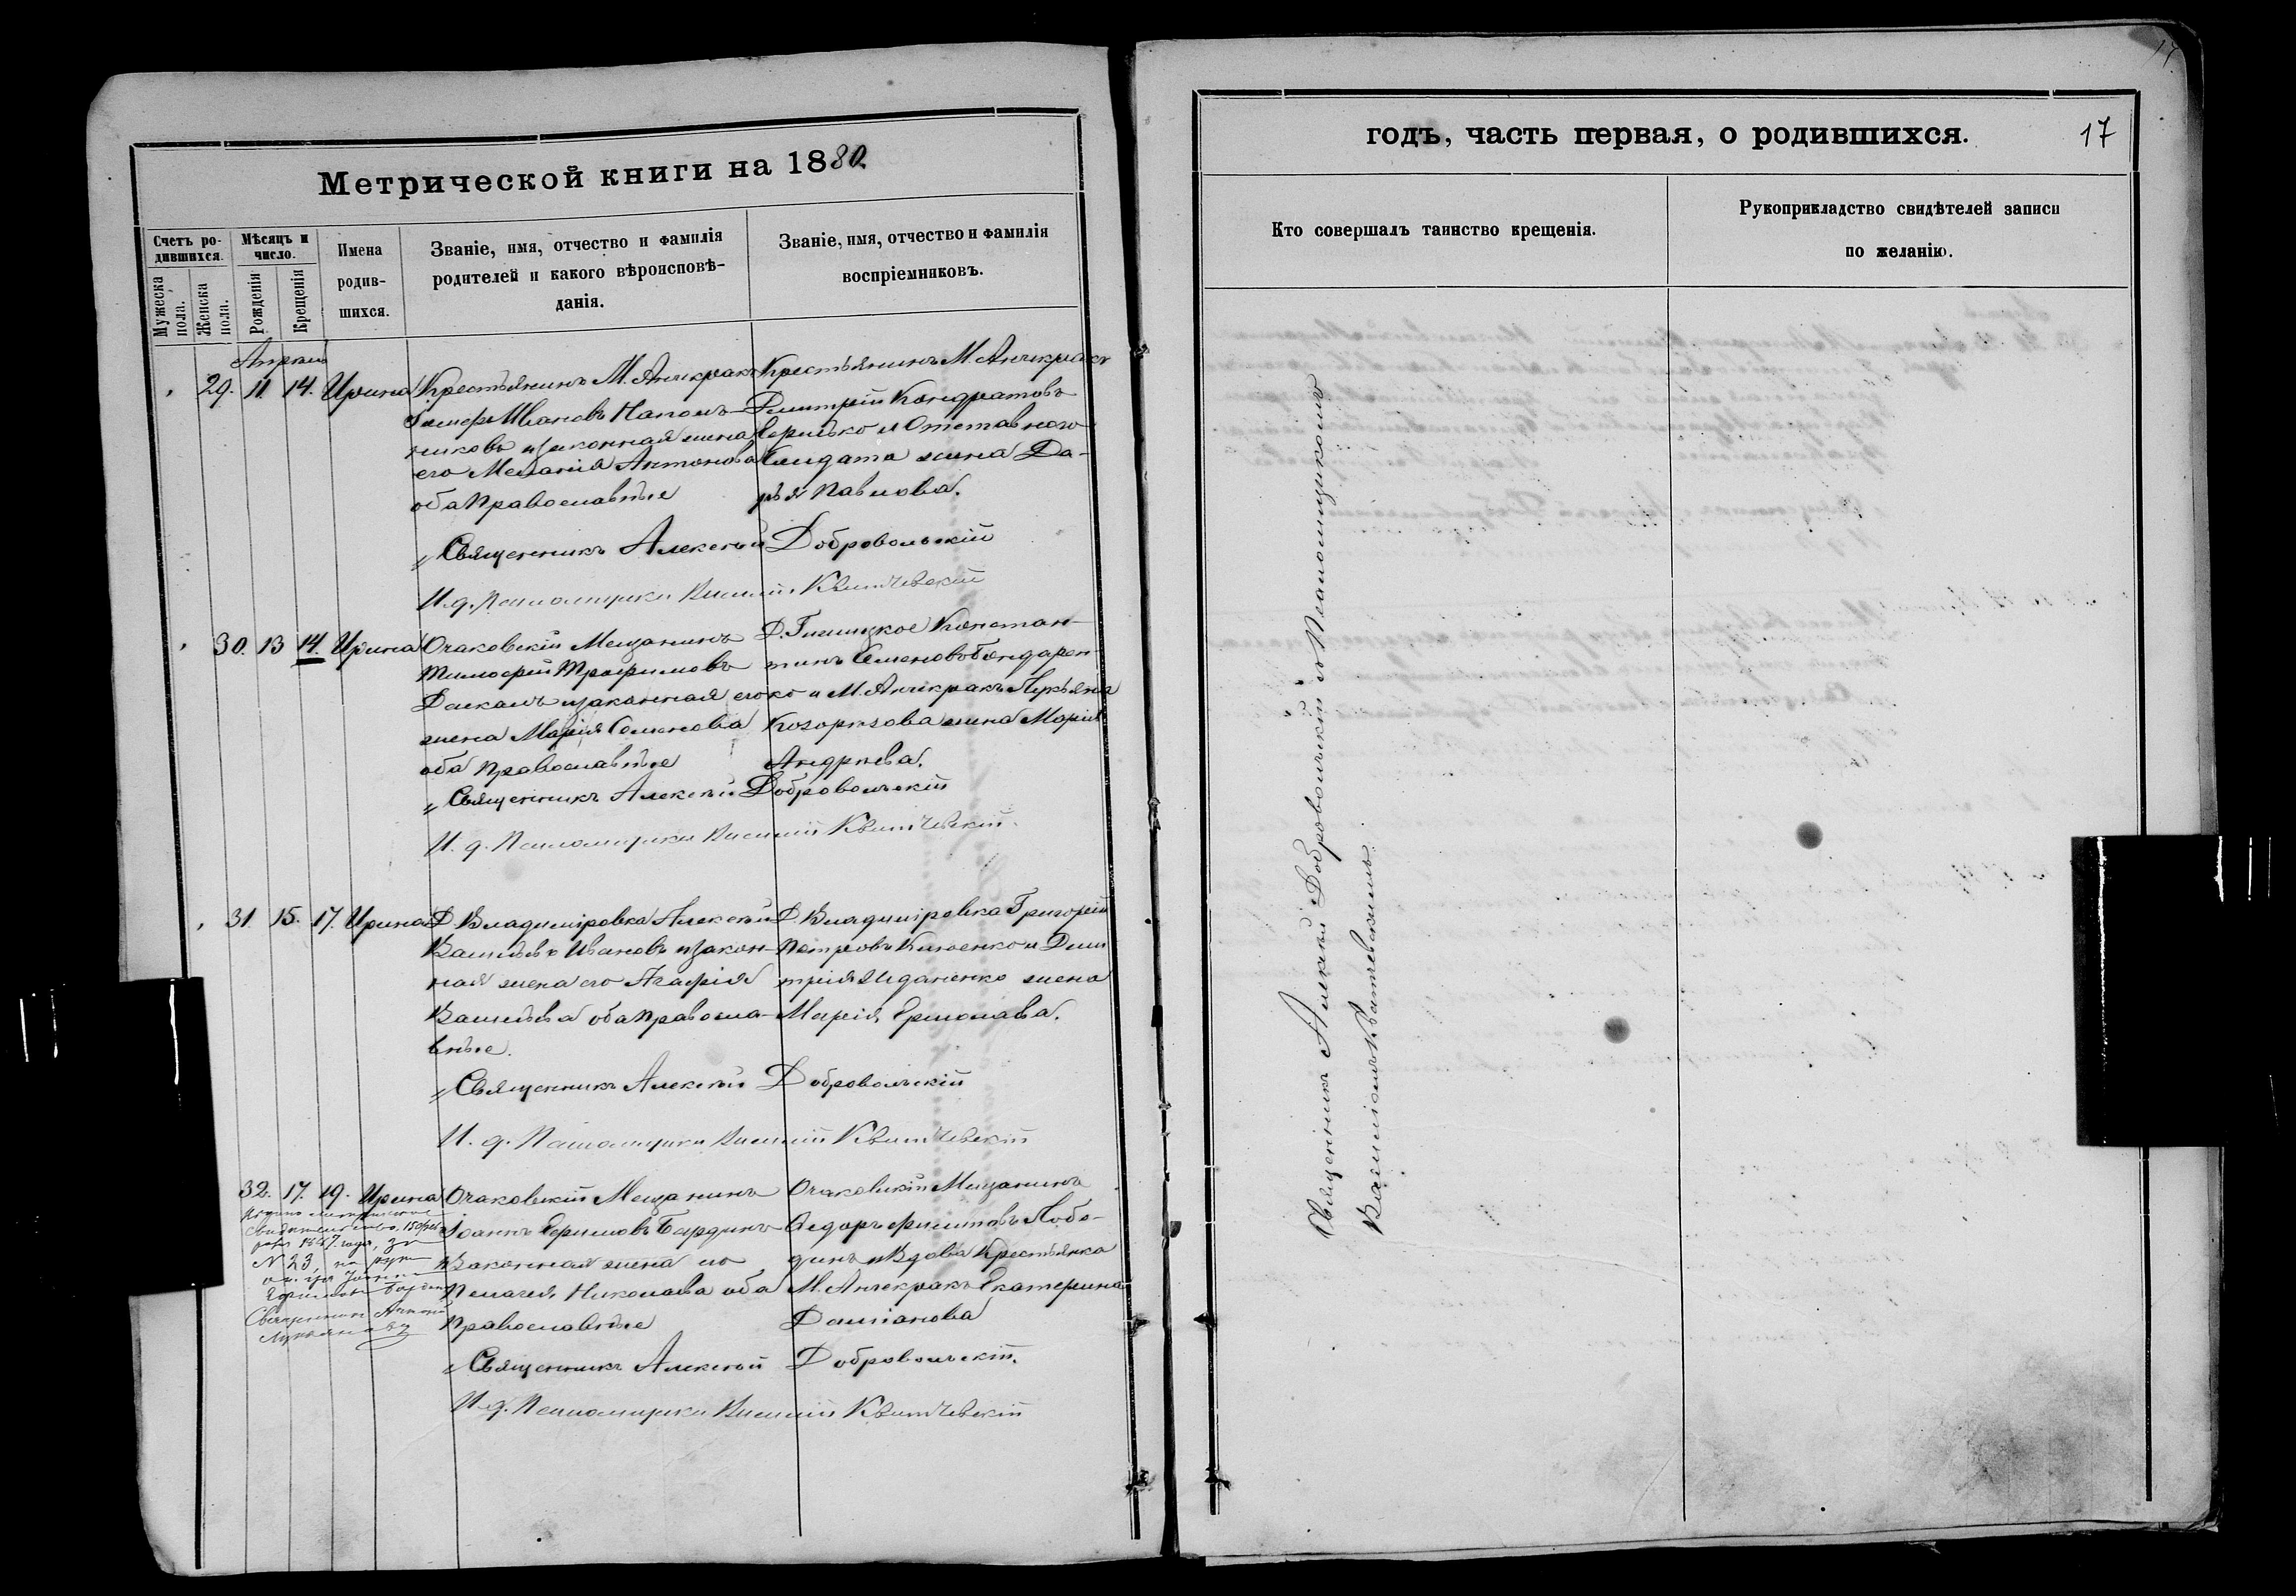 Метрической книги на 1880.
Счетъ ро-
дившихся.
Мужеска
пола.
Женска
пола.
Мѣсяцъ и
число.
Рожденія
Крещенія
Имена
родив-
шихся.
Званіе, имя, отчество и фамилія
родителей и какого вѣроисповѣ-
данія.
Званіе, имя, отчество и фамилія
воспріемниковъ.
Апрель
29. 11 14. Ирина
Крестьянинъ М. Анчекракъ
Ивановъ
никовъ и законная жена
его Меланія Антонова
оба Православные
Крестьянинъ М. Анчекракъ
Димитрій Кондратовъ
и Отставного
Солдата жена Да-
рья Павлова.
Священникъ Алексѣй Добровольскій
И. д. Псаломщика Василій Квитчевскій
30. 13 14. Ирина
Очаковскій Мещанинъ
Тимофей Трофимовъ
и законная его
жена Марія Семенова
оба Православные
Д. Константинъ
тинъ Семеновъ Бондарен-
ко и М. Анчекракъ Лукьяна
Козорѣзова жена Марія
Андреева.
Священникъ Алексѣй Добровольскій
И. д. Псаломщика Василій Квитчевскій.
31 15. 17. Ирина
Д. Владиміровка Алексѣй
Васильевъ Ивановъ и закон-
ная жена его Агафія
Васильева оба Правосла-
вные.
Д. Владиміровка Григорій
Петровъ и Дими
трія Иданенко жена
Марія Ермолаева.
Священникъ Алексѣй Добровольскій
И. д. Псаломщика Василій Квитчевскій
32. 17. 19. Ирина
свидетельство 15 фев-
раля года, за
N 23, на рук
отца
Священникъ
Очаковскій Мещанинъ
Іоаннъ Ефимовъ Бардинъ
и Законная жена его
Пелагея Николаева оба
Православные
Очаковскій Мещанинъ
Ѳедоръ Филиповъ Лобо-
динъ и Вдова Крестьянка
М. Анчекракъ Екатерина
Даміанова
Священникъ Алексѣй Добровольскій.
И. д. Псаломщика Василій Квитчевскій
годъ, часть первая, о родившихся.
17
Кто совершалъ таинство крещенія.
Рукоприкладство свидѣтелей записи
по желанію.
Священникъ Алексѣй Добровольскій съ Псаломщикомъ
Василіемъ Квитчевскимъ.